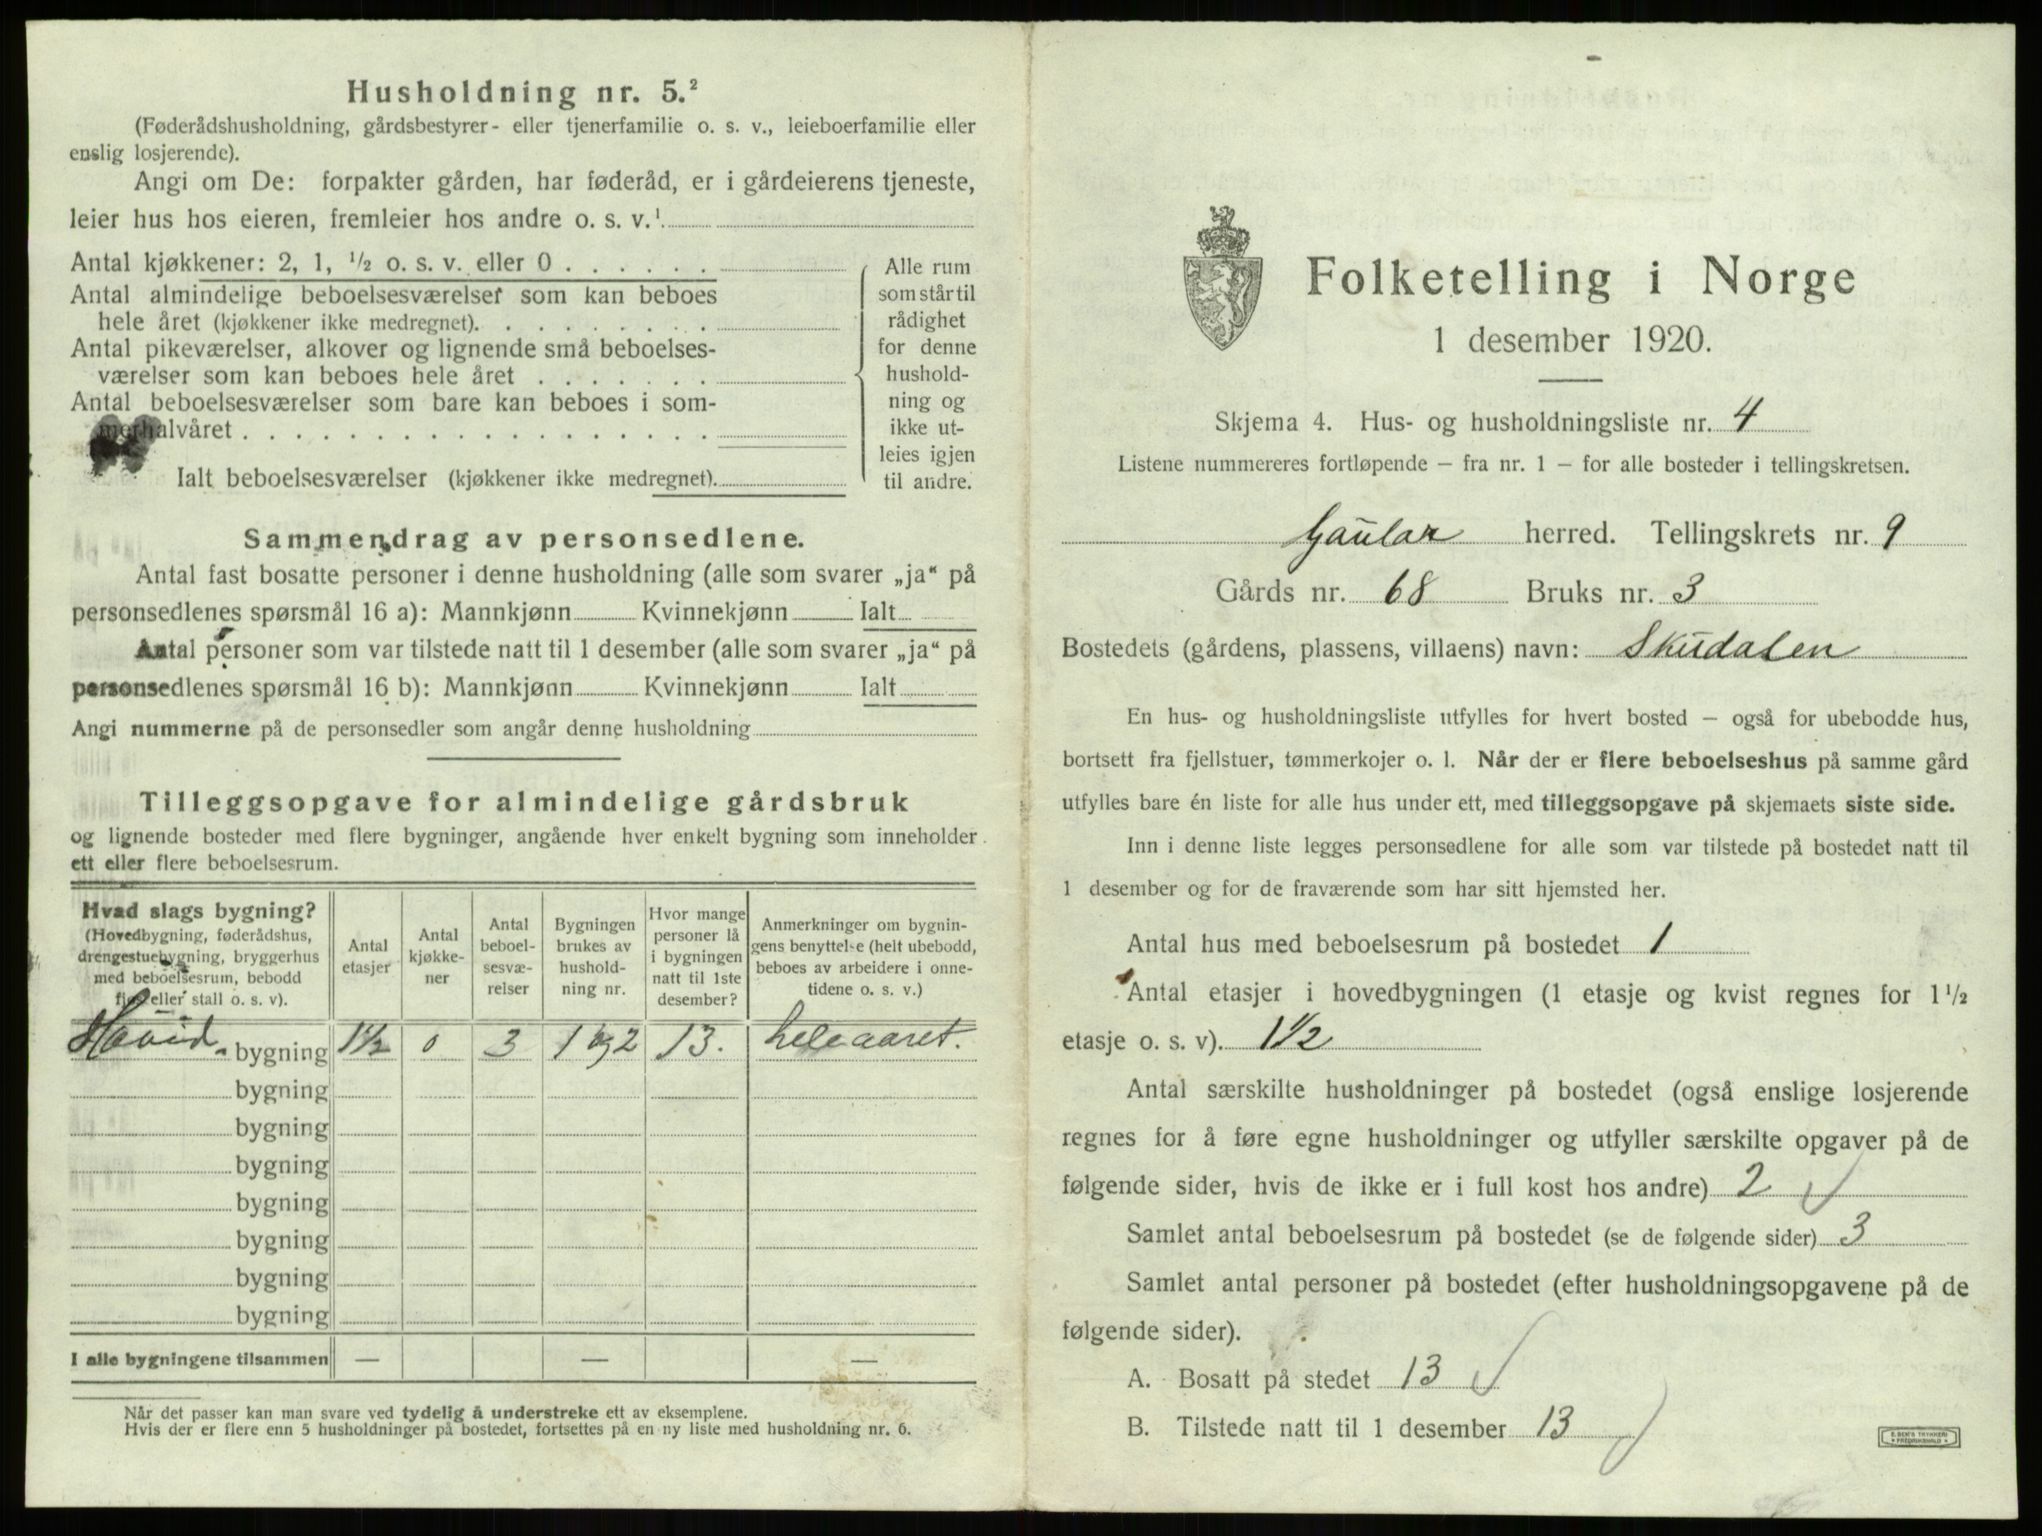 Husholdning nr. 5.²
(Føderådshusholdning, gårdsbestyrer- eller tjenerfamilie o. s. v., leieboerfamilie eller
enslig losjerende).
Angi om De: forpakter gården, har føderåd, er i gårdeierens tjeneste,
leier hus hos eieren, fremleier hos andre o. s. v.¹
Antal kjøkkener: 2, 1, ½ o. s. v. eller 0
Antal almindelige beboelsesværelser som kan beboes
hele året (kjøkkener ikke medregnet).
Antal pikeværelser, alkover og lignende små beboelses-
værelser som kan beboes hele året
Antal beboelsesværelser som bare kan beboes i som-
merhalvåret
Ialt beboelsesværelser (kjøkkener ikke medregnet).
Alle rum
som står til
rådighet
for denne
hushold-
ning og
ikke ut-
leies igjen
til andre.
Sammendrag av personsedlene.
Antal fast bosatte personer i denne husholdning (alle som svarer „ja“ på
personsedlenes spørsmål 16 a): Mannkjønn Kvinnekjønn Ialt
Antal personer som var tilstede natt til 1 desember (alle som svarer „ja“ på
personsedlenes spørsmål 16 b): Mannkjønn Kvinnekjønn Ialt
Angi nummerne på de personsedler som angår denne husholdning
Tilleggsopgave for almindelige gårdsbruk
og lignende bosteder med flere bygninger, angående hver enkelt bygning som inneholder
ett eller flere beboelsesrum.
Hvad slags bygning?
(Hovedbygning, føderådshus,
drengestuebygning, bryggerhus
med beboelsesrum, bebodd
fjøs eller stall o. s. v).
Antal
etasjer
Antal
kjøkke-
ner
Antal
beboel-
sesvæ-
relser
Bygningen
brukes av
hushold-
ning nr.
Hvor mange
personer lå
i bygningen
natt til 1ste
desember?
Anmerkninger om bygnin-
gens benyttelse (helt ubebodd,
beboes av arbeidere i onne-
tidene o. s. v.)
bygning 1½ 0 3 1 og 2 13. hele aaret.
bygning
bygning
bygning
bygning
bygning
bygning
bygning
I alle bygningene tilsammen — — —
Når det passer kan man svare ved tydelig å understreke ett av eksemplene.
Hvis der er flere enn 5 husholdninger på bostedet, fortsettes på en ny liste med husholdning nr. 6.
Folketelling i Norge
1 desember 1920.
Skjema 4. Hus- og husholdningsliste nr. 4
Listene nummereres fortløpende – fra nr. 1 – for alle bosteder i tellingskretsen.
Gaular herred. Tellingskrets nr. 9
Gårds nr. 68 Bruks nr. 3
Bostedets (gårdens, plassens, villaens) navn: Skudalen
En hus- og husholdningsliste utfylles for hvert bosted – også for ubebodde hus,
bortsett fra fjellstuer, tømmerkojer o. l. Når der er flere beboelseshus på samme gård
utfylles bare én liste for alle hus under ett, med tilleggsopgave på skjemaets siste side.
Inn i denne liste legges personsedlene for alle som var tilstede på bostedet natt til
1 desember og for de fraværende som har sitt hjemsted her.
Antal hus med beboelsesrum på bostedet 1
Antal etasjer i hovedbygningen (1 etasje og kvist regnes for 1½
etasje o. s. v). 1½
Antal særskilte husholdninger på bostedet (også enslige losjerende
regnes for å føre egne husholdninger og utfyller særskilte opgaver på de
følgende sider, hvis de ikke er i full kost hos andre) 2
Samlet antal beboelsesrum på bostedet (se de følgende sider) 3
Samlet antal personer på bostedet (efter husholdningsopgavene på de
følgende sider).
A. Bosatt på stedet 13
B. Tilstede natt til 1 desember 13